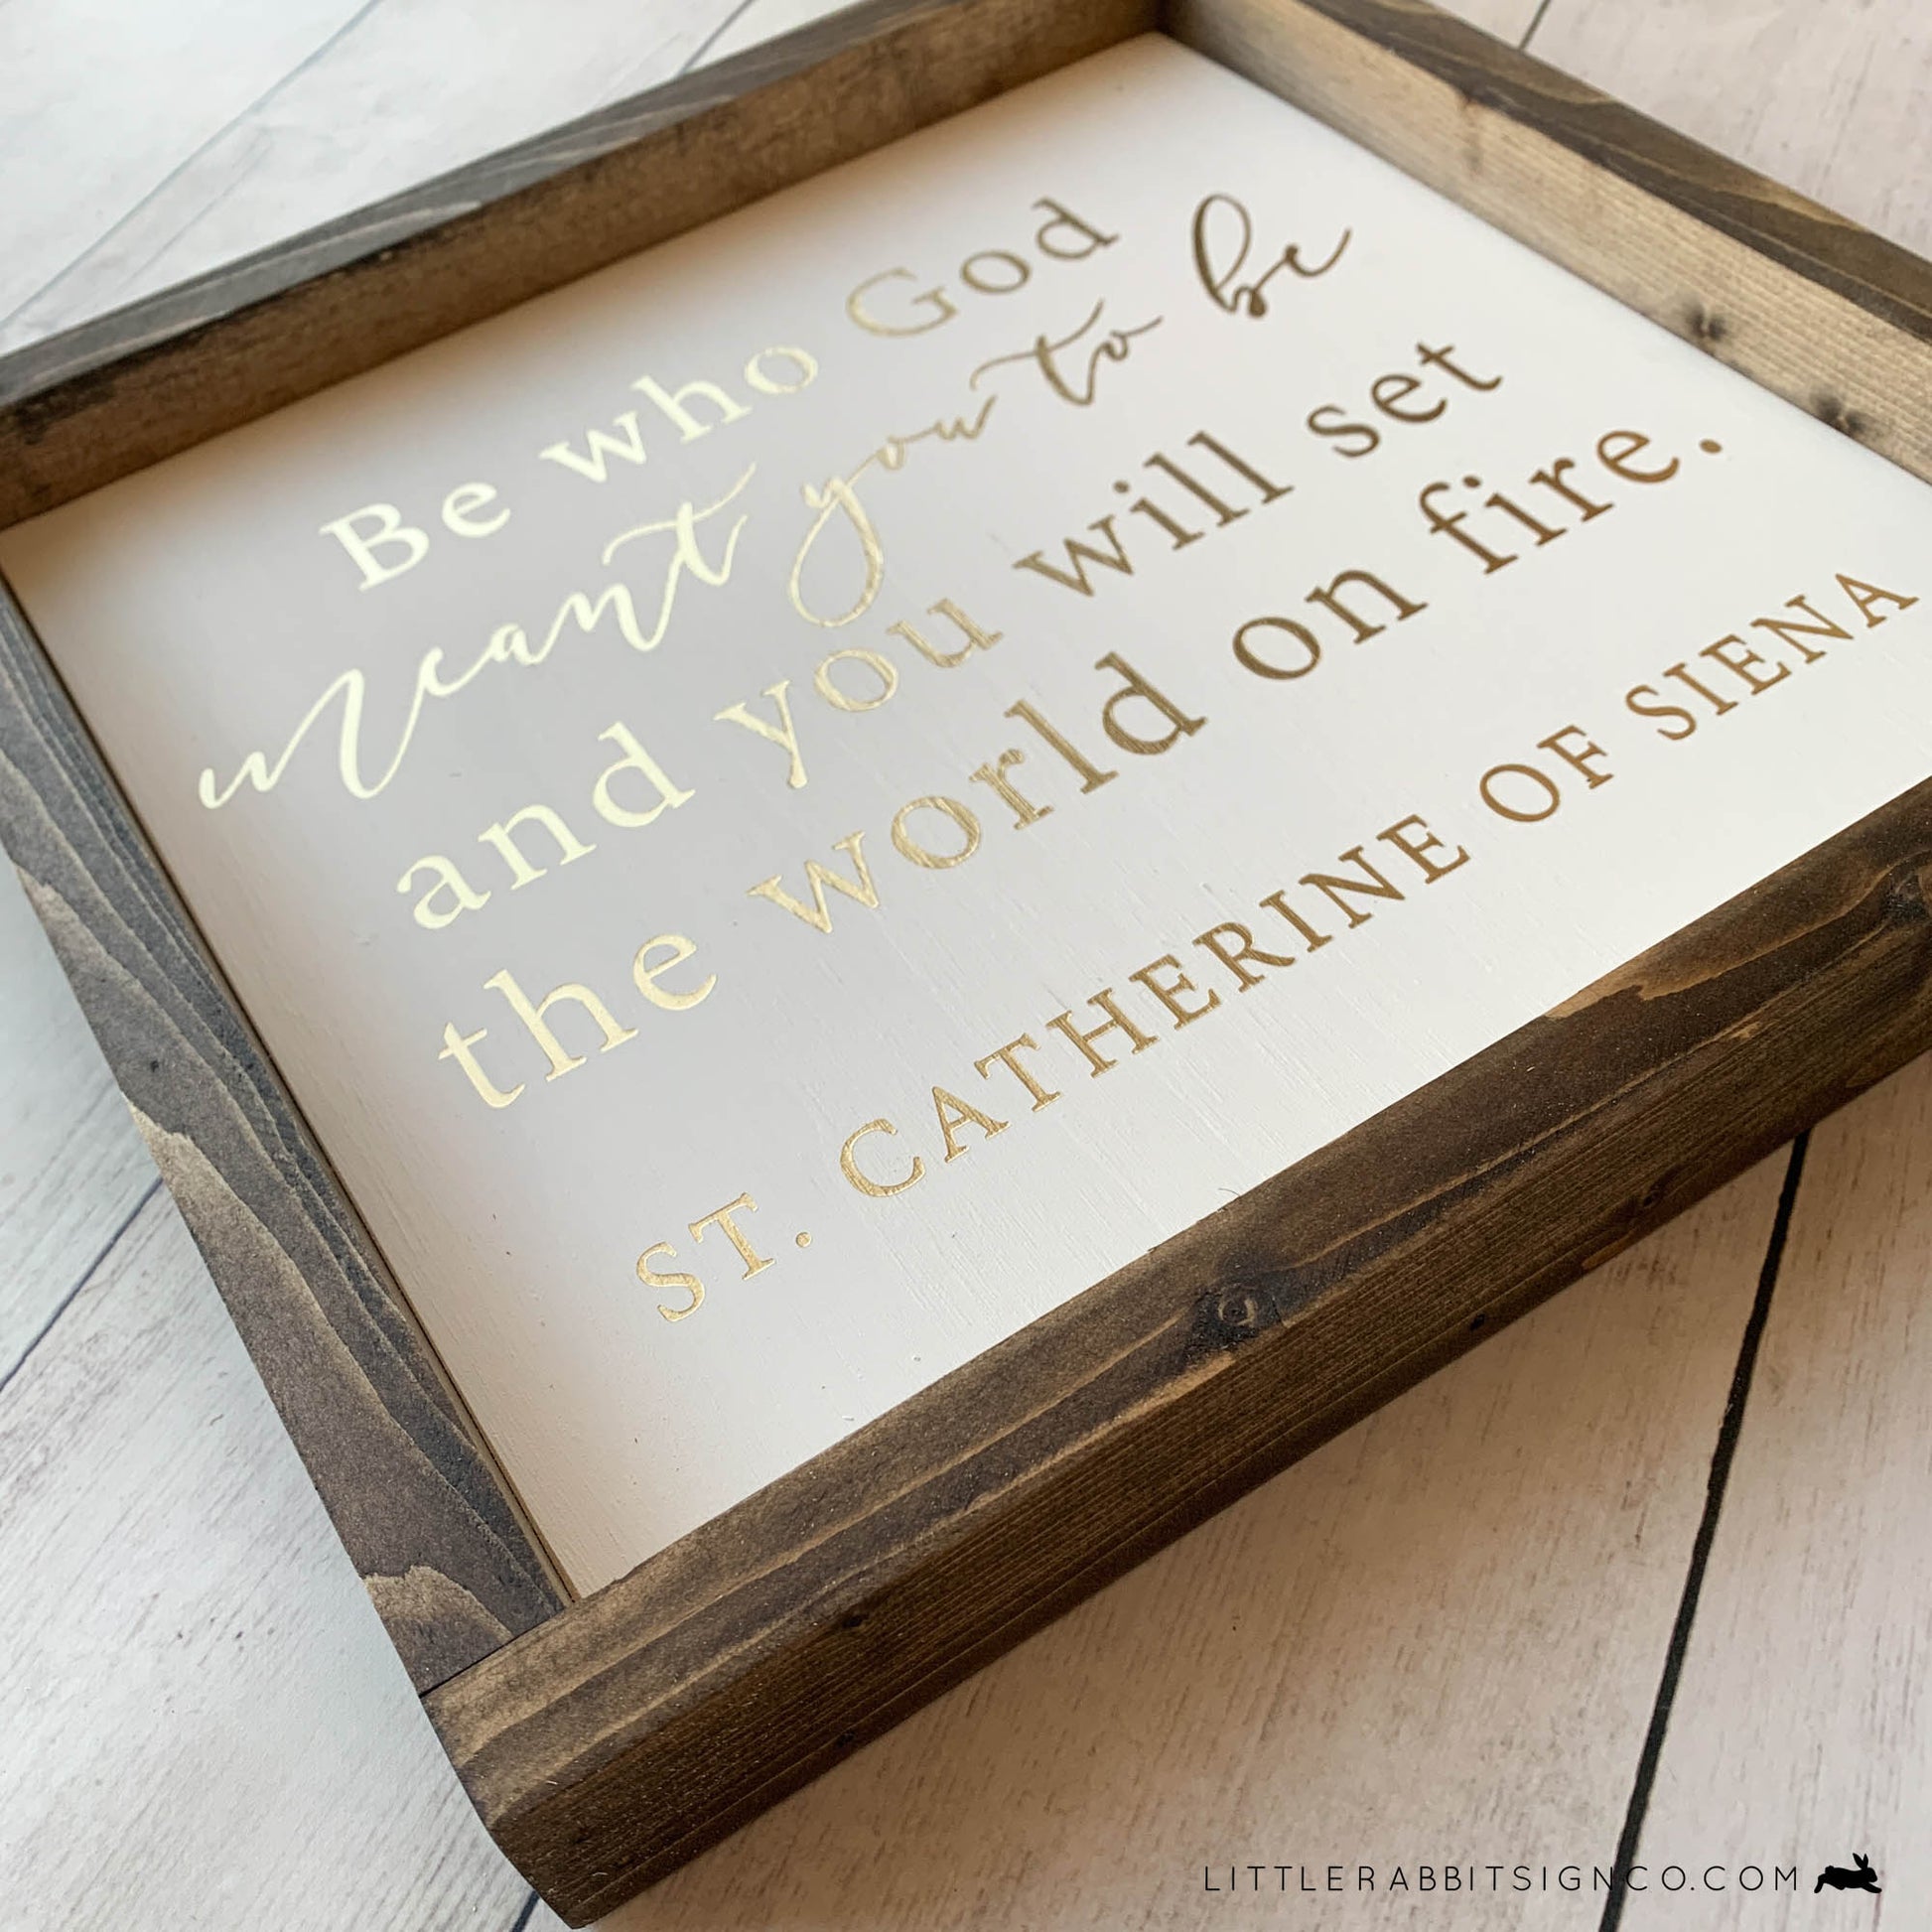 Be who God
meant you to be
and you will set
the world on fire.
ST. CATHERINE OF SIENA
LITTLERABBITSIGNCO.COM